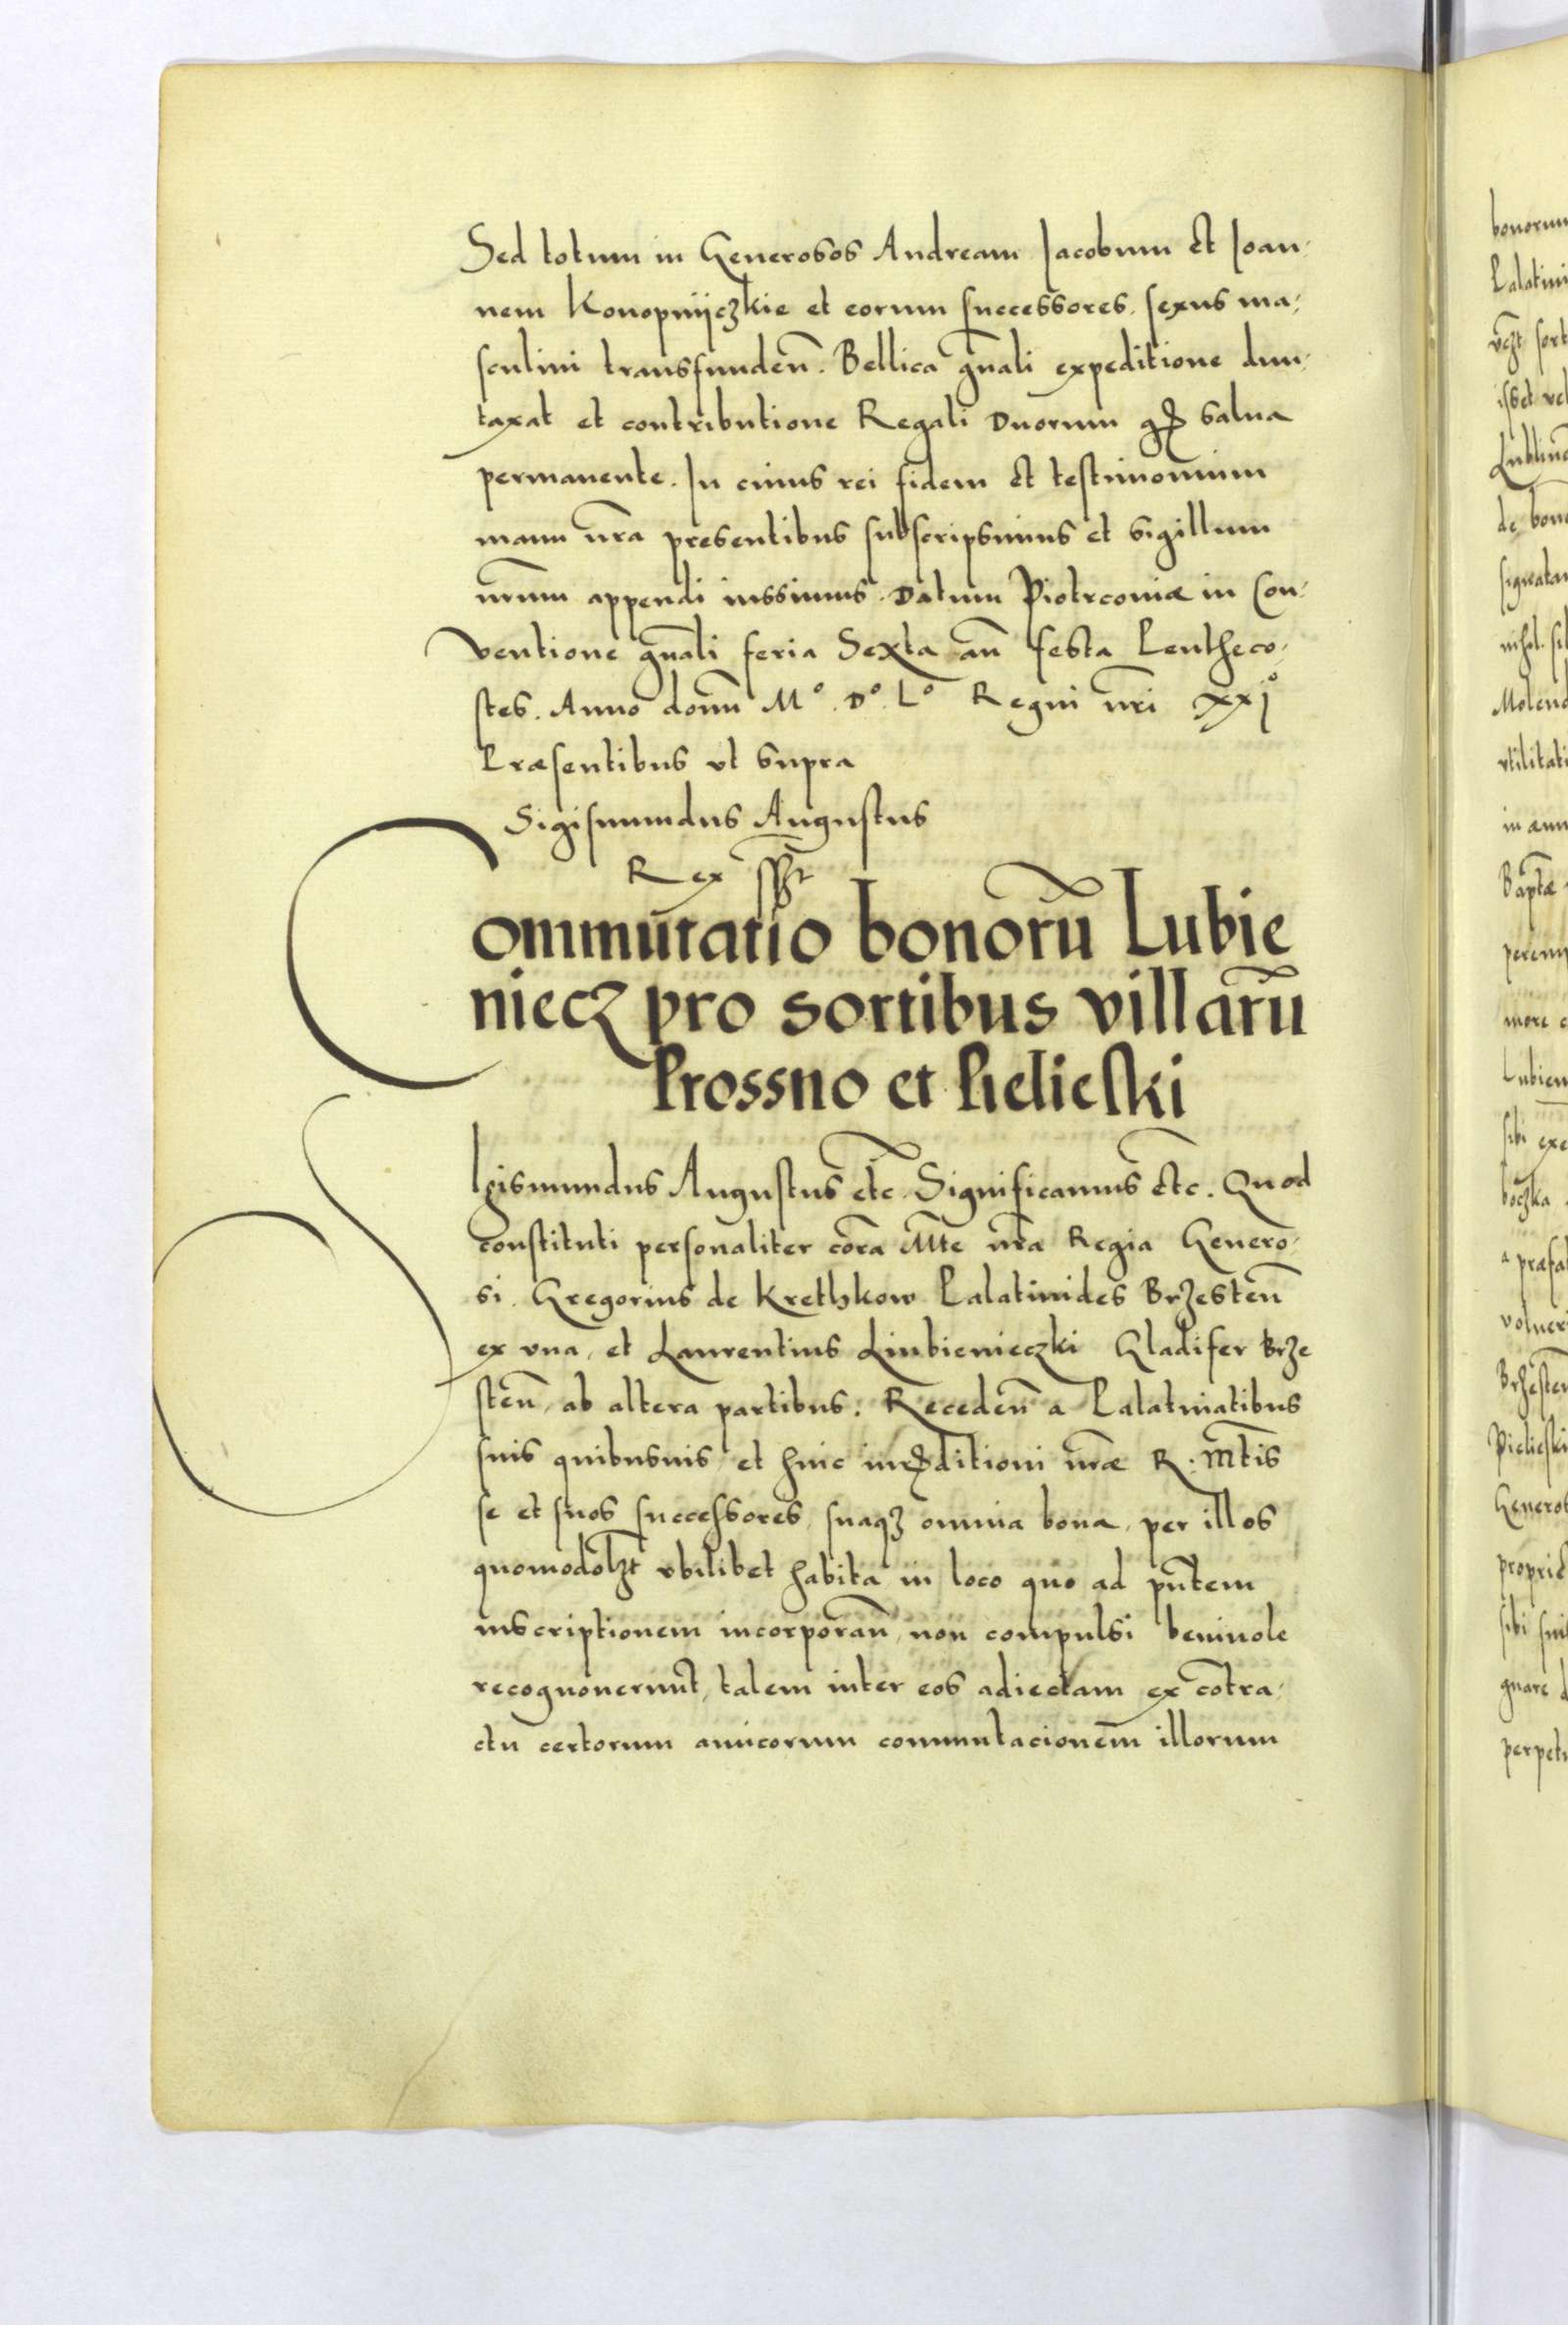 Sed totum in Generosos Andream Jacobum et Joan-
nem Konopnijczkie et eorum successores, sexus ma-
sculini transfunden̄. Bellica gn̄ali expeditione dun-
taxat et contributione Regali Duorum salua
permanente. In cuius rei fidem et testimonium
manu nr̄a presentibus subscripsimus et sigillum
nr̄um appendi iussimus. Datum Piotrconiæ in Con-
ventione gn̄ali feria Sexta an̄ festa Penthæco-
stes. Anno domī Mº. Dº. Lº Regni nr̄i XXIº
Præsentibus vt supra
Sigismundus Augustus
Rex sspt
Commutatio bonorū Lubie
niecz pro sortibus villarū
Prossno et Pielieski
SIgismundus Augustus etc. Significamus etc. Quod
constituti personaliter corā Mt̄e nr̄a Regia Genero-
si. Gregorius de Krethkow Palatinides Brzesten̄
ex vna, et Laurentius Liubienieczki Gladifer Brze
sten̄, ab altera partibus. Receden̄ a Palatinatibus
suis quibusuis et huic iurisditioni nr̄æ R. Mt̄is
se et suos successores, suaqz omnia bona, per illos
quomodolzt vbilibet habita in loco quo ad pn̄tem
inscriptionem incorporan̄, non compulsi beniuole
recognouerunt, talem inter eos adiectam ex cōtra-
ctu certorum amicorum commutacionem illorum
bonorum
Palatini
Lublin
de bon
signata
Molend
vtilitati
in ann
Bapt̄æ
perem
more
Lubien
sibi exe
boczka
a præfa
voluer
Brzesten
Pielieski
Generos
propri
sibi
gnare
perpet